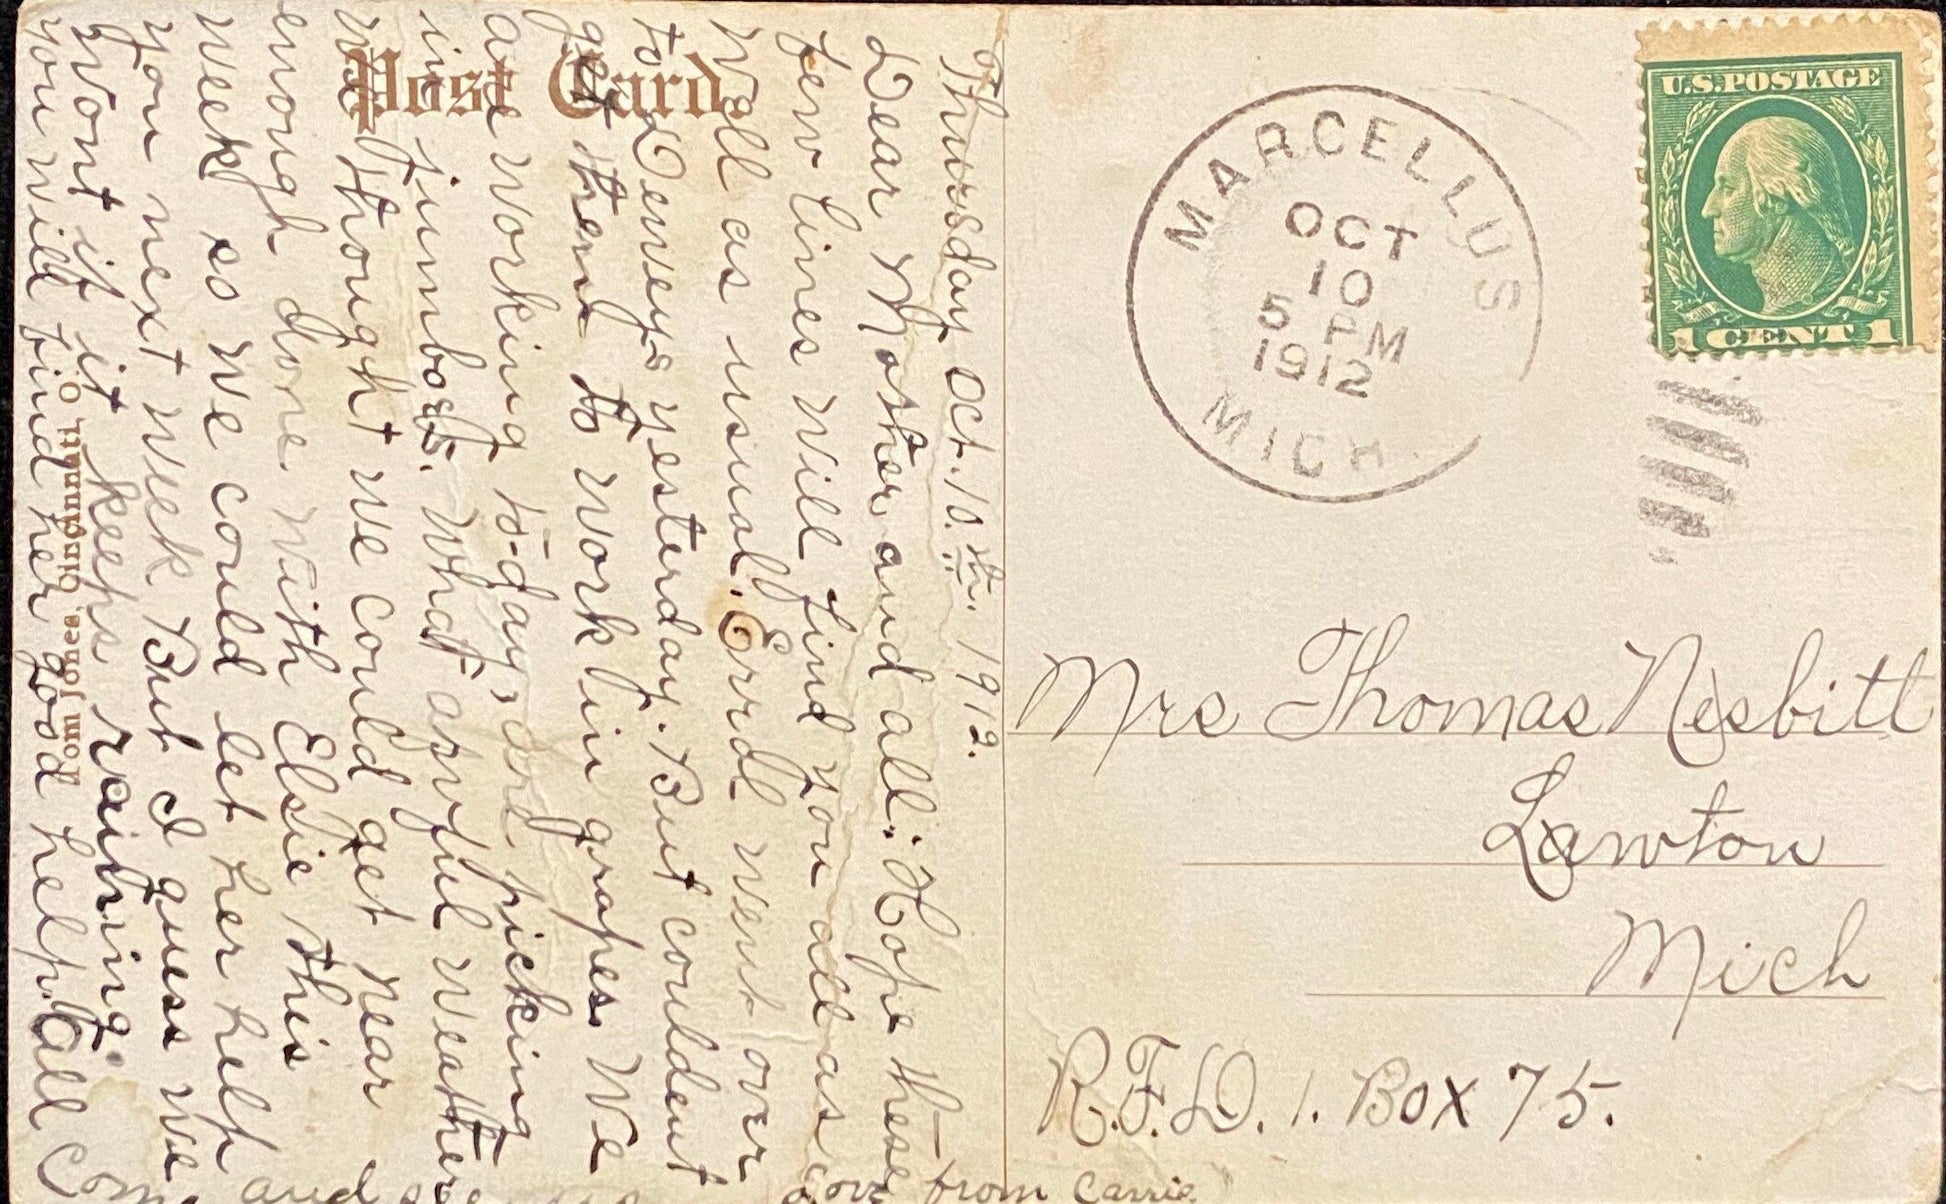 Post Card
Thursday Oct. 10th. 1912.
Dear Mother and all: Hope these
few lines will find you all as
well as usual. Errol went over
to Deweys yesterday. But couldent
get them to work in grapes We
are working to-day, and picking
in jumbos. What awful weather
We thought we could get near
enough done with Elsie this
week so we could let her help
you next week But I guess we
Wont if it keeps raining.
you will find her good help. all
Come and
love from Carrie
Tom Jones, Cincinnati, O.
MARCELLUS
OCT
10
5 PM
1912
MICH.
U.S. POSTAGE
1 CENT 1
Mrs Thomas Nesbitt
Lawton
Mich
R.F.D. 1. Box 75.